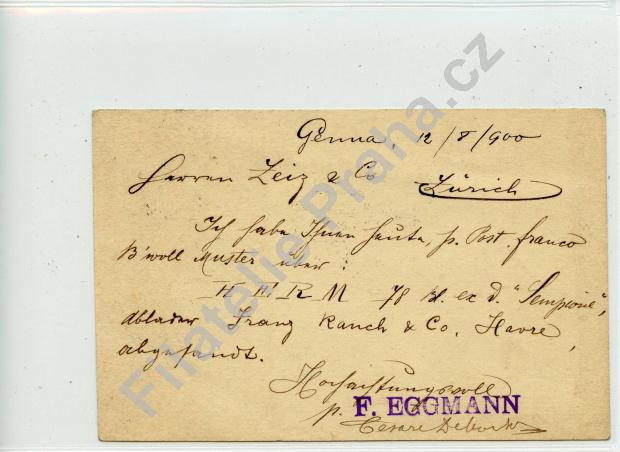 Genua, 12/8/900
Herren Zeiz & Co Zürich
Ich habe Ihnen heute, p. Post franco
B'woll Muster über:
H F R M 78 bl. ex d. "Sempione",
Ablader Franz Rauch & Co. Havre,
abgesandt.
Hochachtungsvoll
p. F. EGGMANN
Cesare
Filatelie Praha.cz